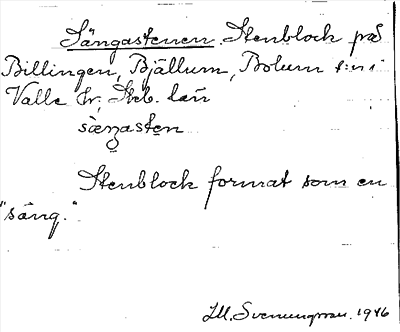 Sängastenen. Stenblock på
Billingen, Bjällum, Bolum s:n i
Valle hr, Skb. län
sæŋasten
Stenblock format som en
"säng."
Svenungsson. 1946